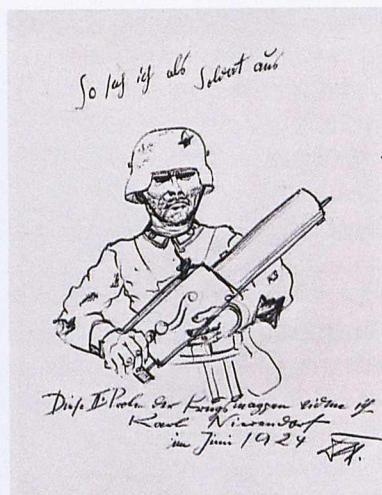 So sah ich als Soldat aus
Diese II. Probe der Kriegsmappen widme ich
Karl Nierendorf
im Juni 1924